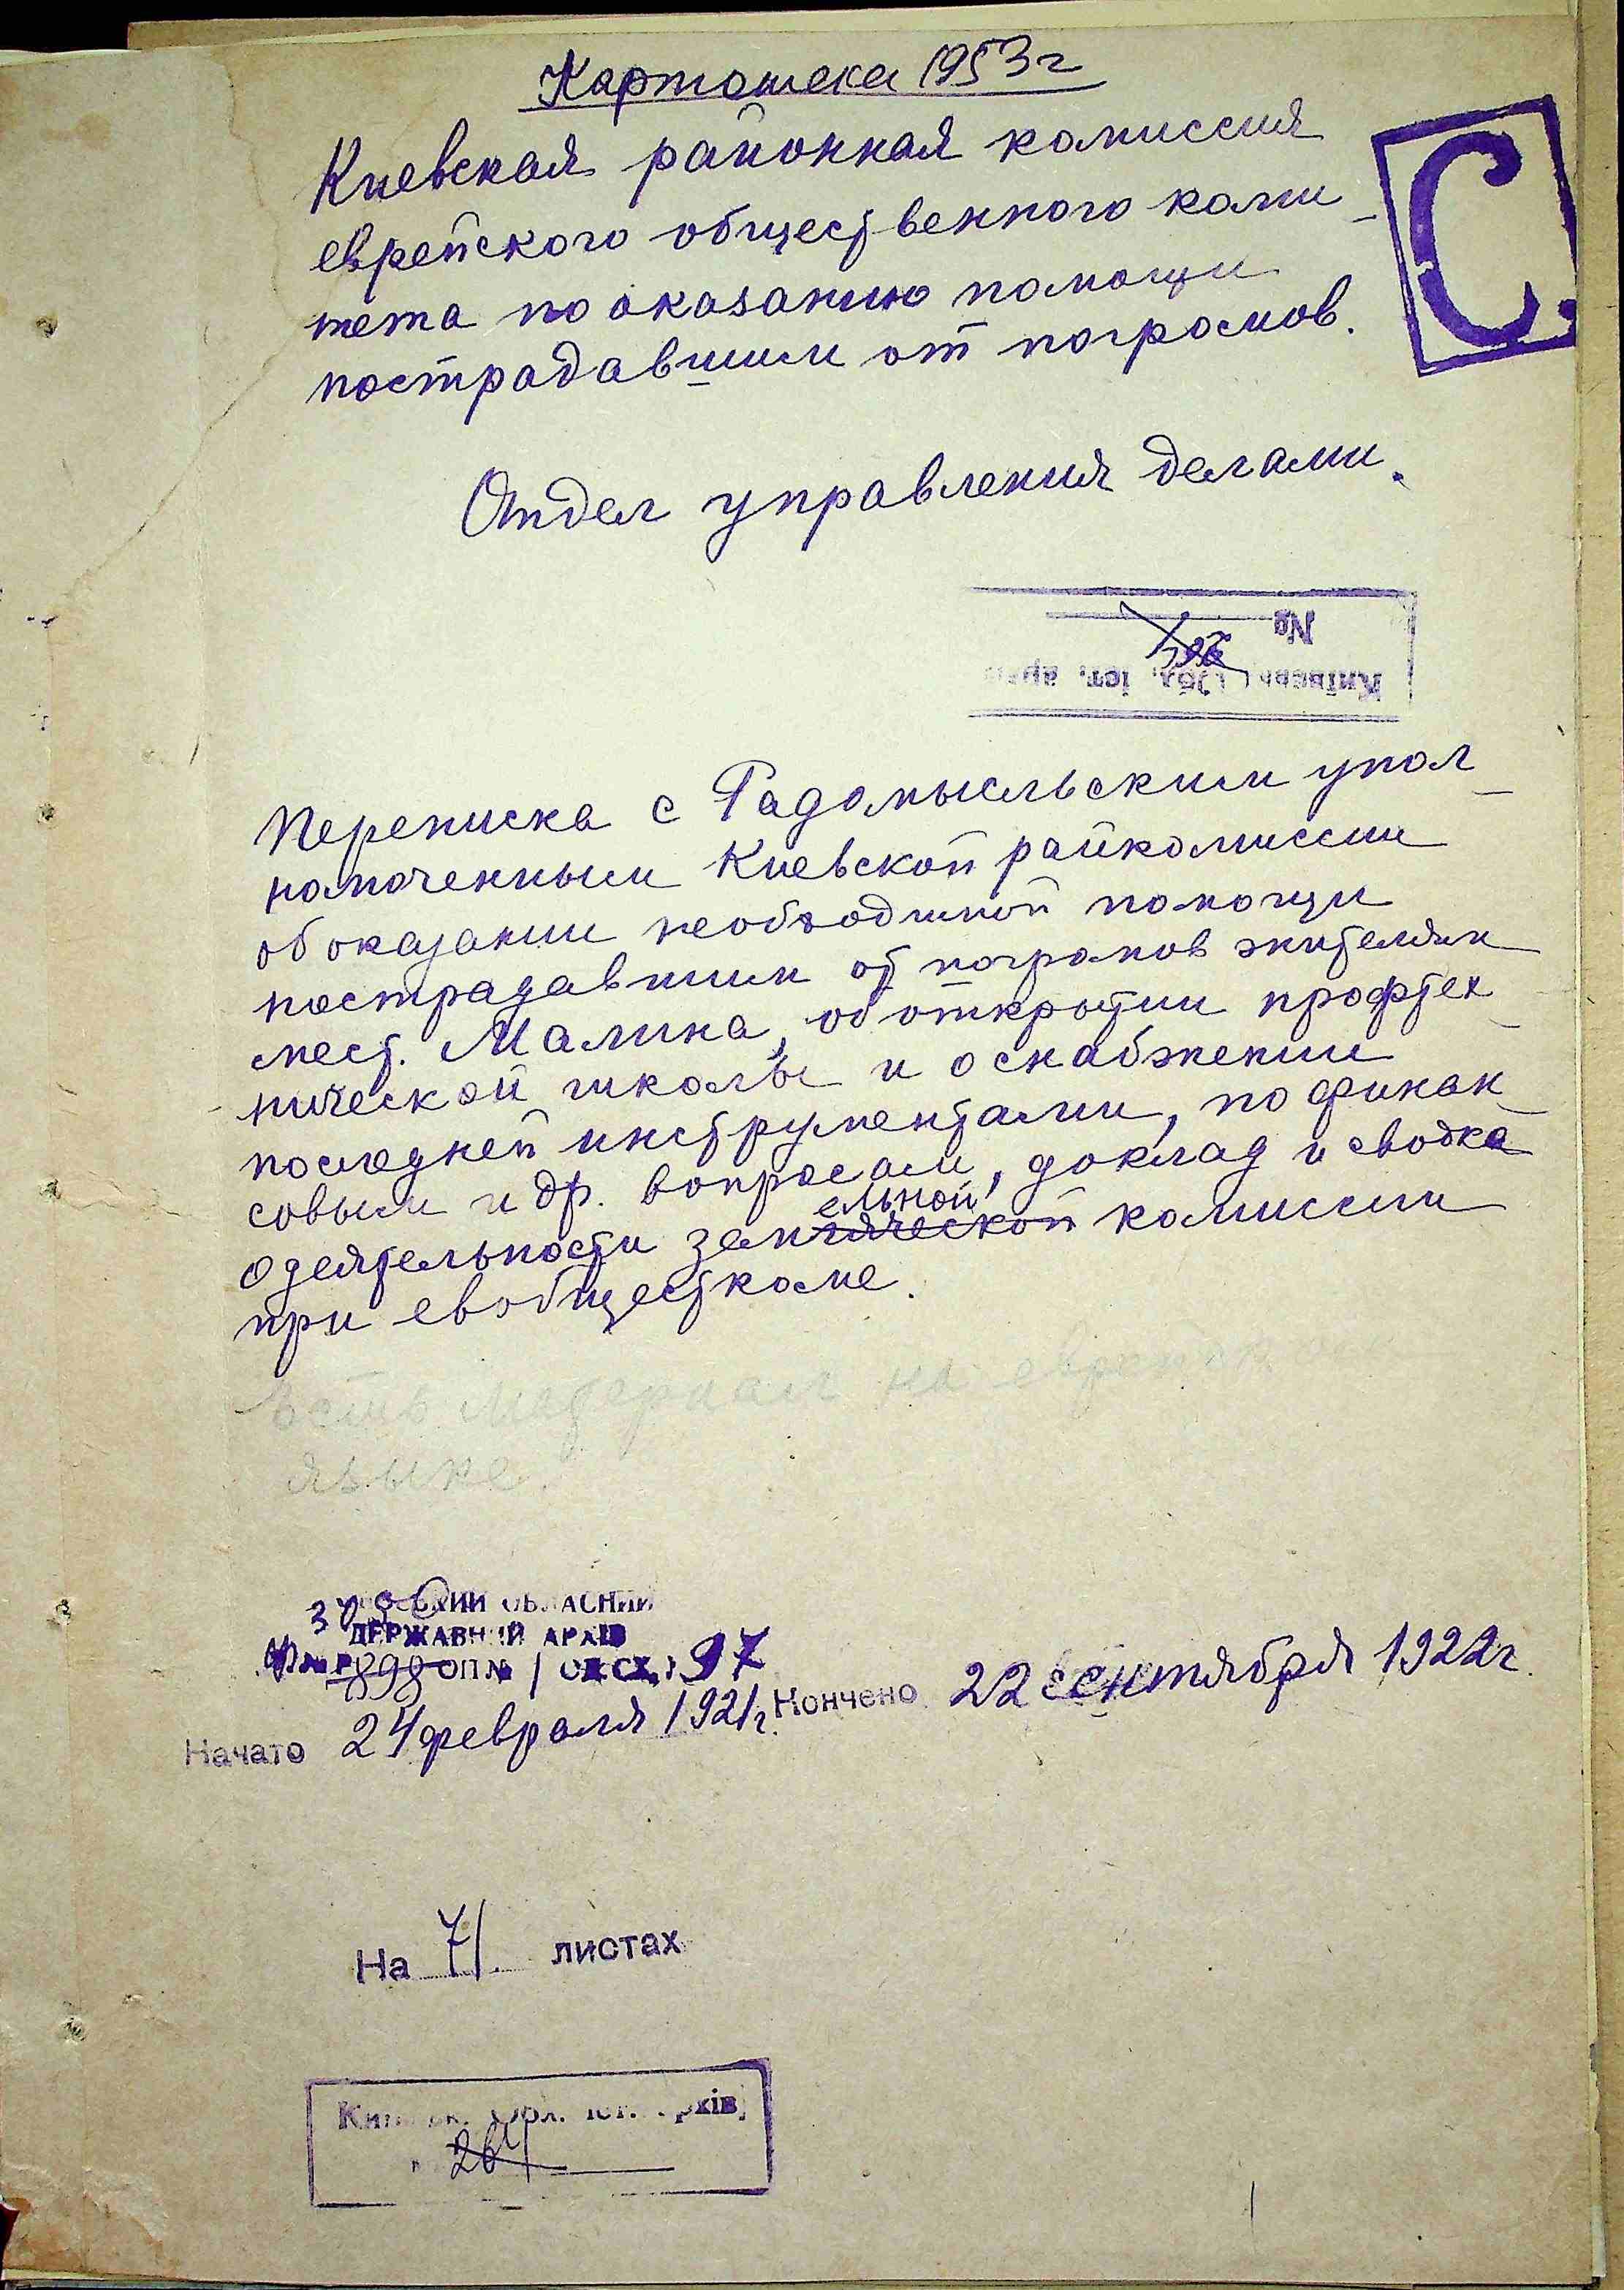 Картотека 1953г
Киевская районная комиссия
еврейского общественного коми-
тета по оказанию помощи
пострадавшим от погромов.
С.
Отдел управления делами.
№
Київськ. Обл. іст. арх
Переписка с Радомысльским упол-
номоченным Киевской райкомиссии
об оказании необходимой помощи
пострадавшим от погромов жителям
мест. Малина, об открытии профтех-
нической школы и о снабжении
последней инструментами, по финан-
совым и др. вопросам, доклад и сводка
ельной
о деятельности земпической комиссии
при евобщесткоме.
Есть материал на еврейском
языке.
ОБЛАСНИЙ
ДЕРЖАВНИЙ АРХІВ
Ф№ Р 898 ОП№ 1 ОД.СХ. 97
Начато 24 февраля 1921г. Кончено 22 сентября 1922г.
На 71 листах
Київськ. Обл. іст. архів
261